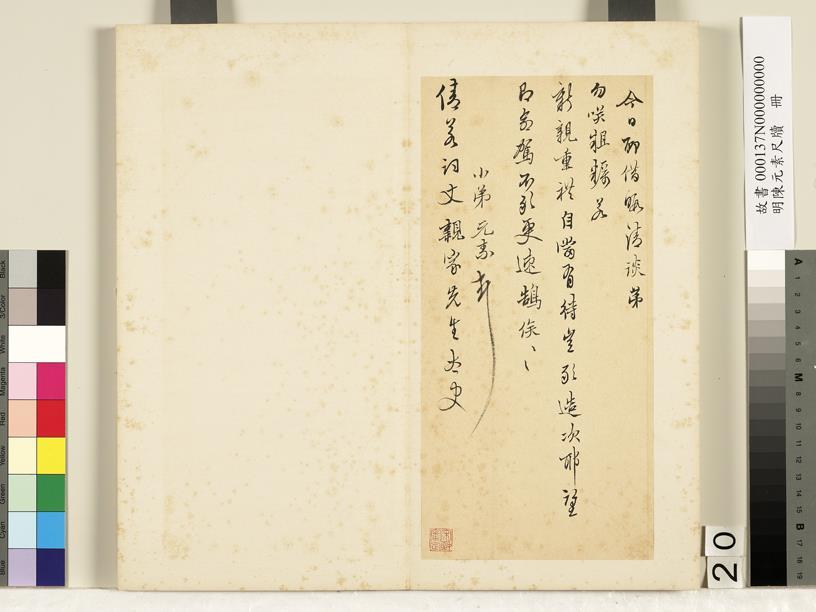 今日聊借暇清談第
勿哭粗糲若
新親重禮自當有待豈敢造次耶望
即命駕不敢更速鵠俟〻
小弟元素
倩若詞丈親家先生太史
故書 000137N000000000
明陳元素尺牘 冊
20
Black
3/Color
White
Magenta
Red
Yellow
Green
Cyan
Blue
A
1
2
3
4
5
6
M
8
9
10
11
12
13
14
15
B
17
18
19